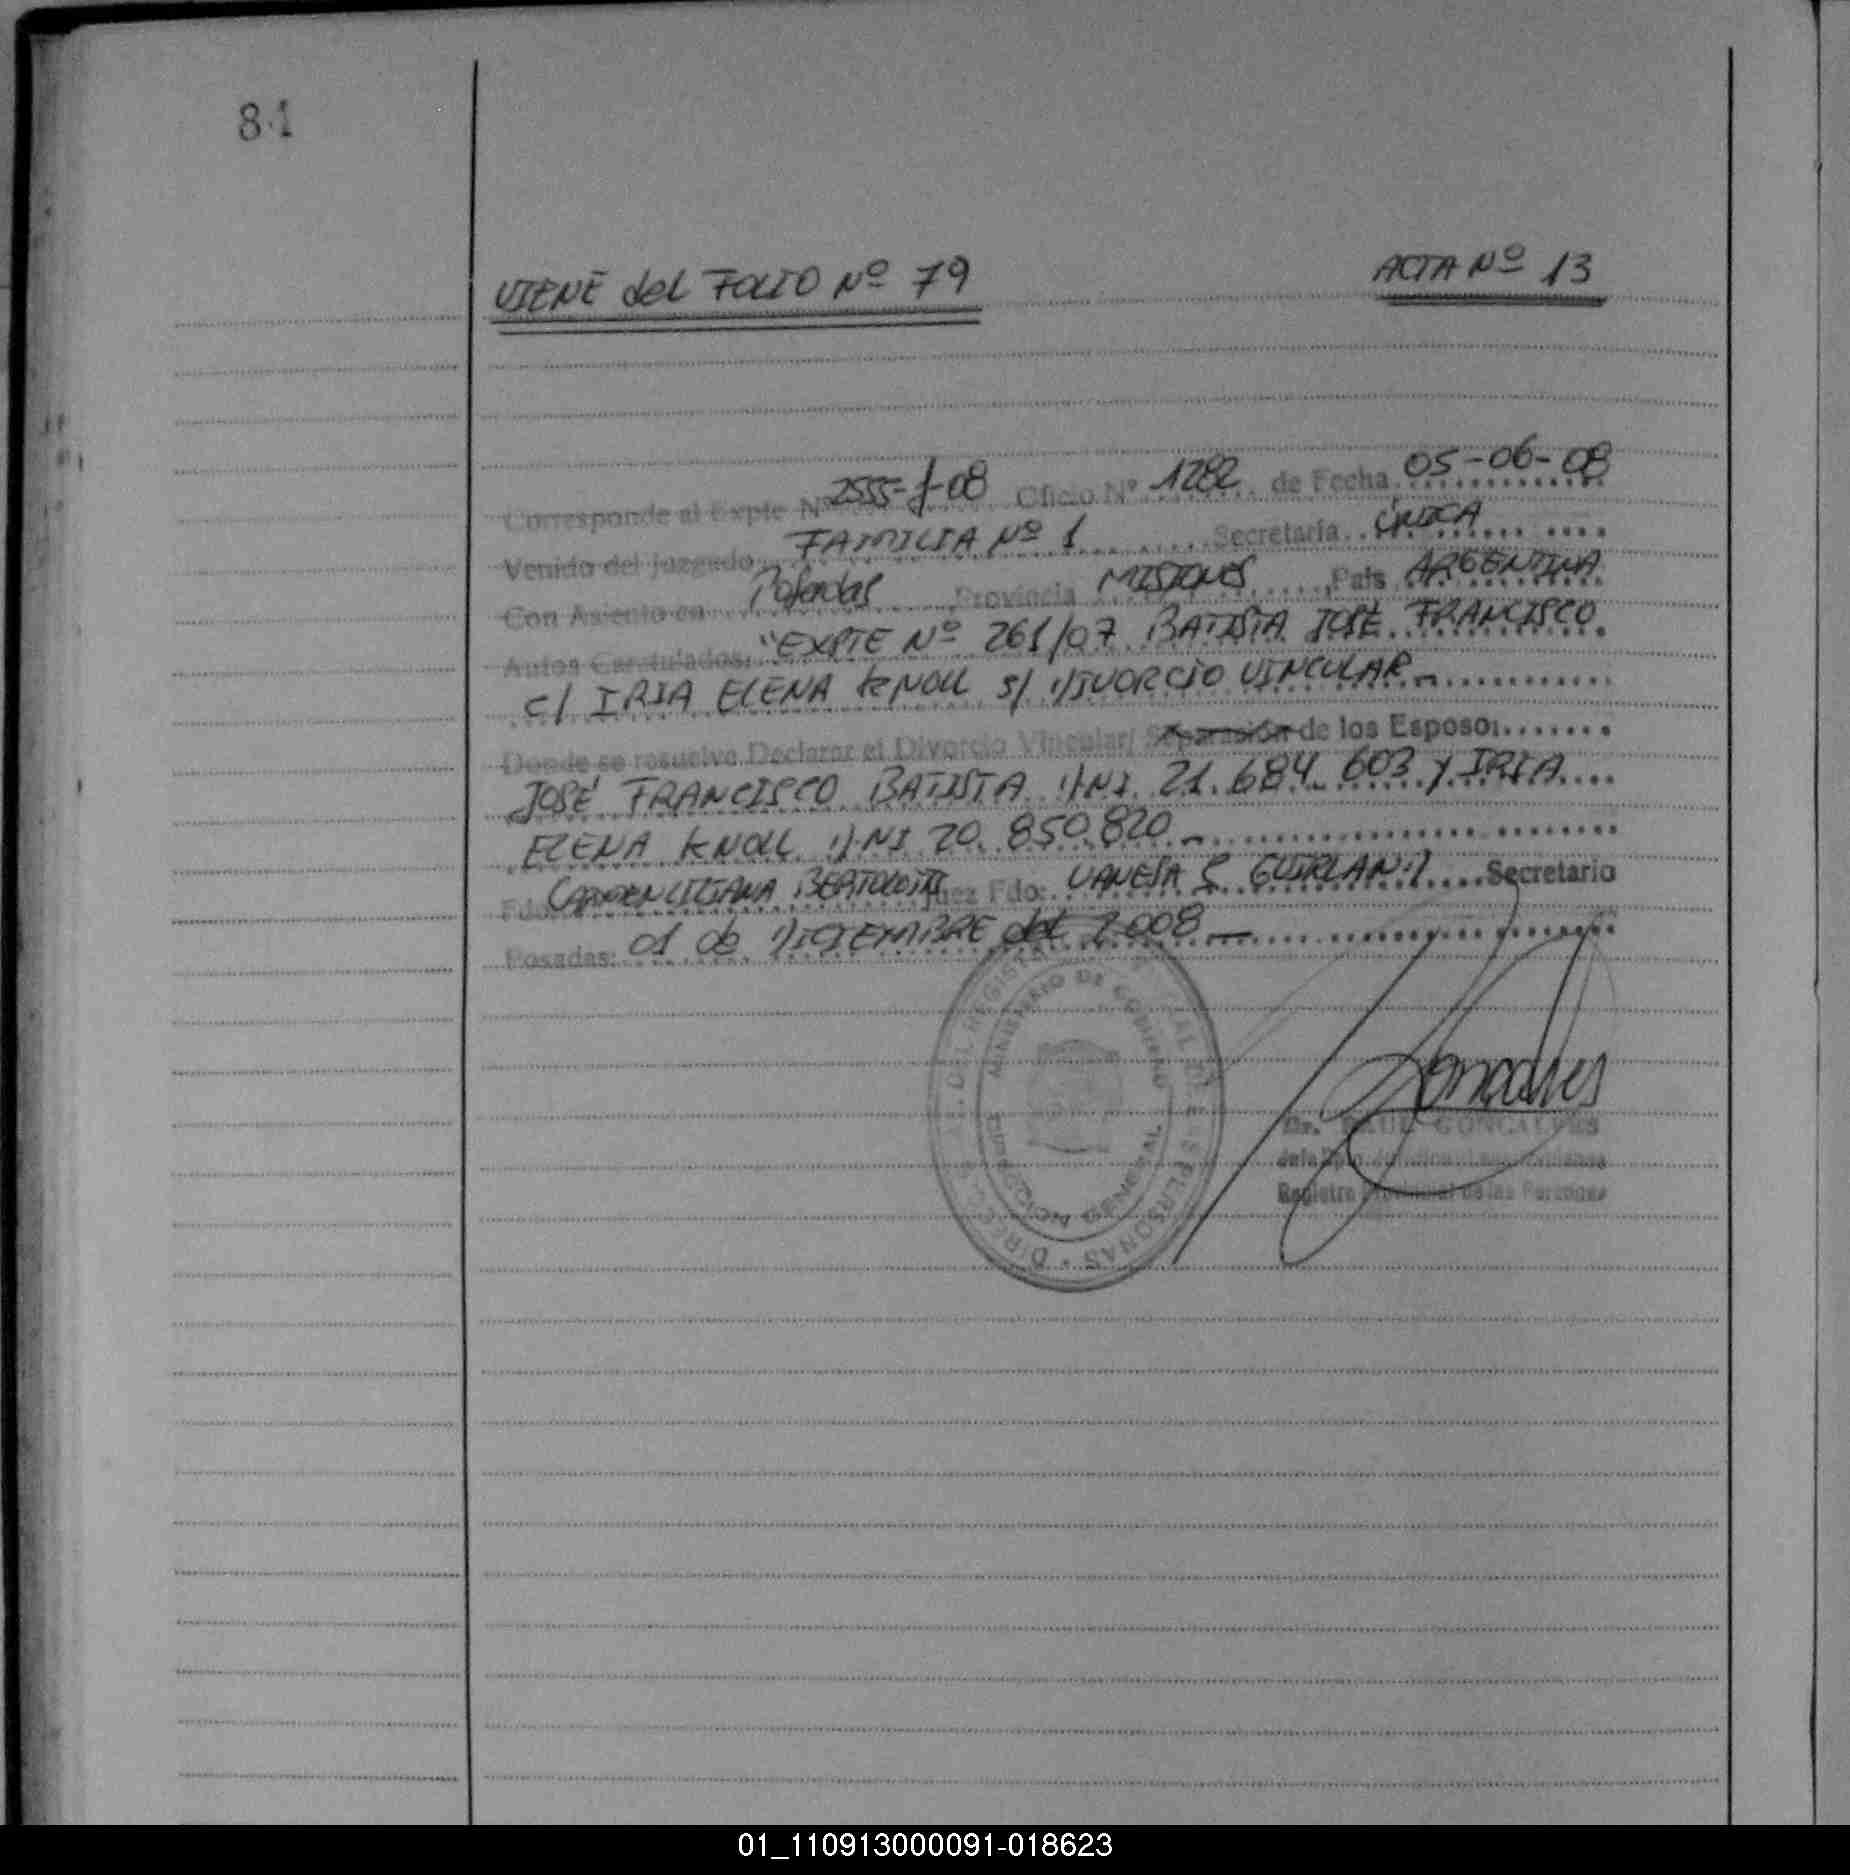 81
VIENE del FOLIO Nº 79 ACTA Nº 13
Corresponde al Expte Nº 2555-J-08 Oficio Nº 1282 de Fecha 05-06-08
Venido del Juzgado FAMILIA Nº 1 Secretaría ÚNICA
Con Asiento en Posadas Provincia MISIONES País ARGENTINA
Autos Caratulados: "EXPTE Nº 261/07 BATISTA JOSÉ FRANCISCO
C/ IRIA ELENA KNOLL S/ DIVORCIO VINCULAR
Donde se resuelve Declarar el Divorcio Vincular/ Separación de los Esposos
JOSÉ FRANCISCO BATISTA DNI. 21.684.603 y IRIA
ELENA KNOLL DNI 20.850.820
Fdo: CARMEN LILIANA Juez Fdo: VANESA Secretario
Posadas: 01 de DICIEMBRE del 2008
MINISTERIO DE GOBIERNO
PERSONAS
Dr. RAUL GONCALVES
Registro Provincial de las Personas
01_110913000091-018623